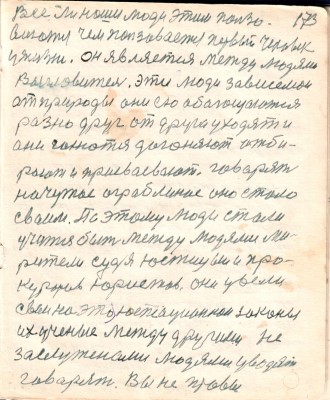 173
Все ли наши люди этим пользо-
ваются чем пользывается первый человек
у жизни. Он является между людями
эти люди зависемои
от природы они ею обогащаются
разно друг от друга уходят и
они гонются догоняют отби-
рают и присваевают. говорят
на чужое ограбление оно стало
своим. По этому люди стали
учится быть между людями ми-
ретели судя юстицыи и про-
куров юрыстов. они увели
свои на это законы
их учение между другими не
заслуженами людями уводят
говорят. Вы не правы